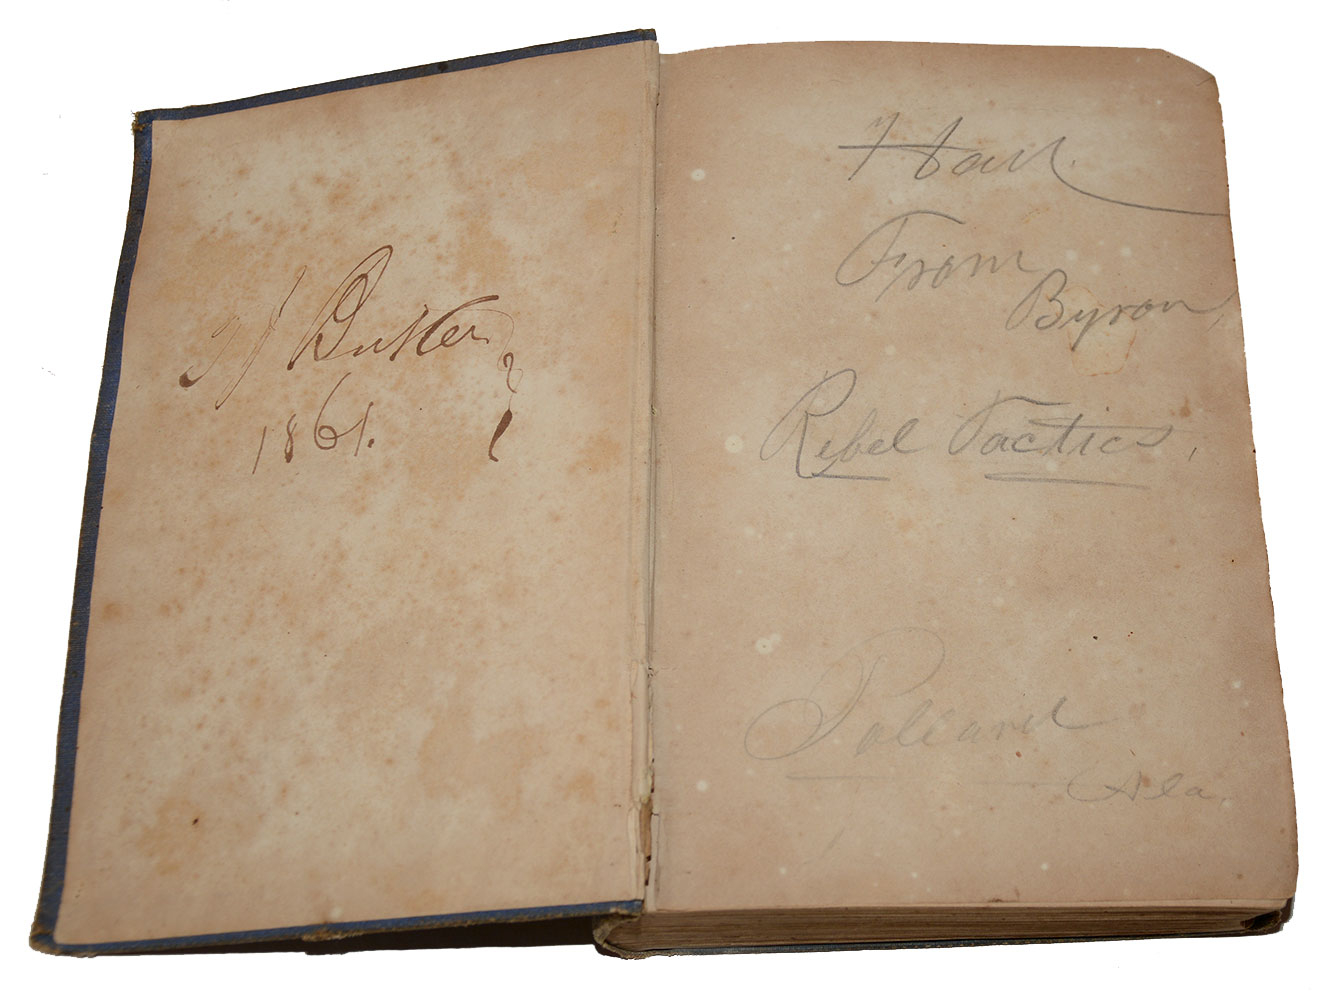 W Butler
1861.
Hail
From
Byron,
Rebel Tactics,
Pollard
Ala